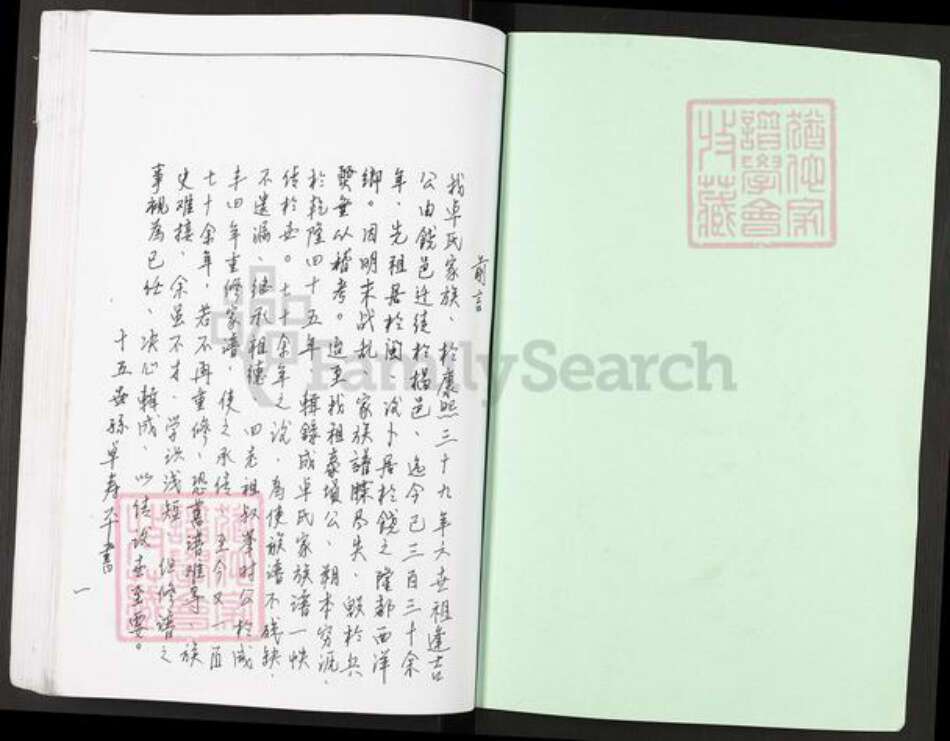 前言
我卓氏家族、於康熙三十九年六世祖逢吉
公由饒邑迁徒於揭邑、迄今已三百三十余
年、先祖居於闽、次卜居於饒之隆都西洋
绑。因明末战乱、家族譜牒多失、毁於兵
燹無以稽考。迨至我祖豪墳公、朔本穷源、
於乾隆四十五年、輯録成卓氏家族譜一帙
传於世。七十余年之说、為使族谱不残缺、
不遗漏、继承祖德、四老祖叔筆时公於咸
丰四年重修家谱、使之承传、至今又一百
七十余年、若不再重修、恐舊谱难寻、族
史难接、余虽不才、学识浅短、但修谱之
事視為己任、决心輯成、以传後世至要。
十五世孫卓寿平書
一
猶他家譜學會收藏
猶他家譜學會收藏
FamilySearch